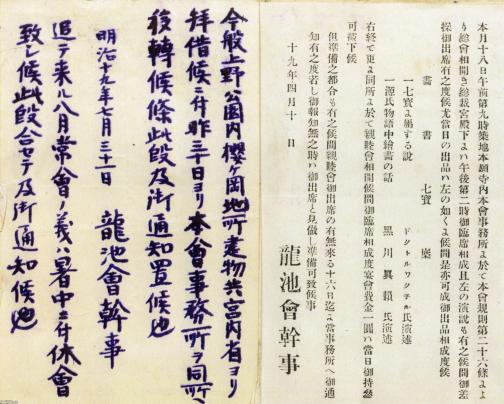 本月十八日午前第九時築地本願寺内本會事務所ニ於て本會規則第二十六條より
り總會相開き總裁宮殿下ニハ午後第二時御臨席相成且左の演説も有之候間御差
操御出席有之度候尤當日の出品ハ左の如くニ候間是亦可成御出品相成度候
書 畫 七寶 藥
一七寶ニ屬する説 ドクトルワクチル氏演述
一源氏物語中繪畫の話 黒川眞頼氏演述
右終て更ニ同所ニ於て親睦會相開候間御臨席相成度宴會費金一圓ハ當日御持參
可被下候
但準備之都合も有之候間親睦會御出席の有無來る十六日迄ニ當事務所へ御通
知有之度若し御報知無之時ハ御出席と見做し準備可致候事
十九年四月十日
龍池會幹事
今般上野公園内櫻ヶ岡地所建物共宮内省ヨリ
拜借候ニ付昨三十日ヨリ本會事務所ヲ同所ヘ
移轉候條此段及御通知置候也
明治十九年七月三十一日 龍池會幹事
追テ来ル八月常會ノ義ハ暑中ニ付休會
致シ候此段合セテ及御通知候也